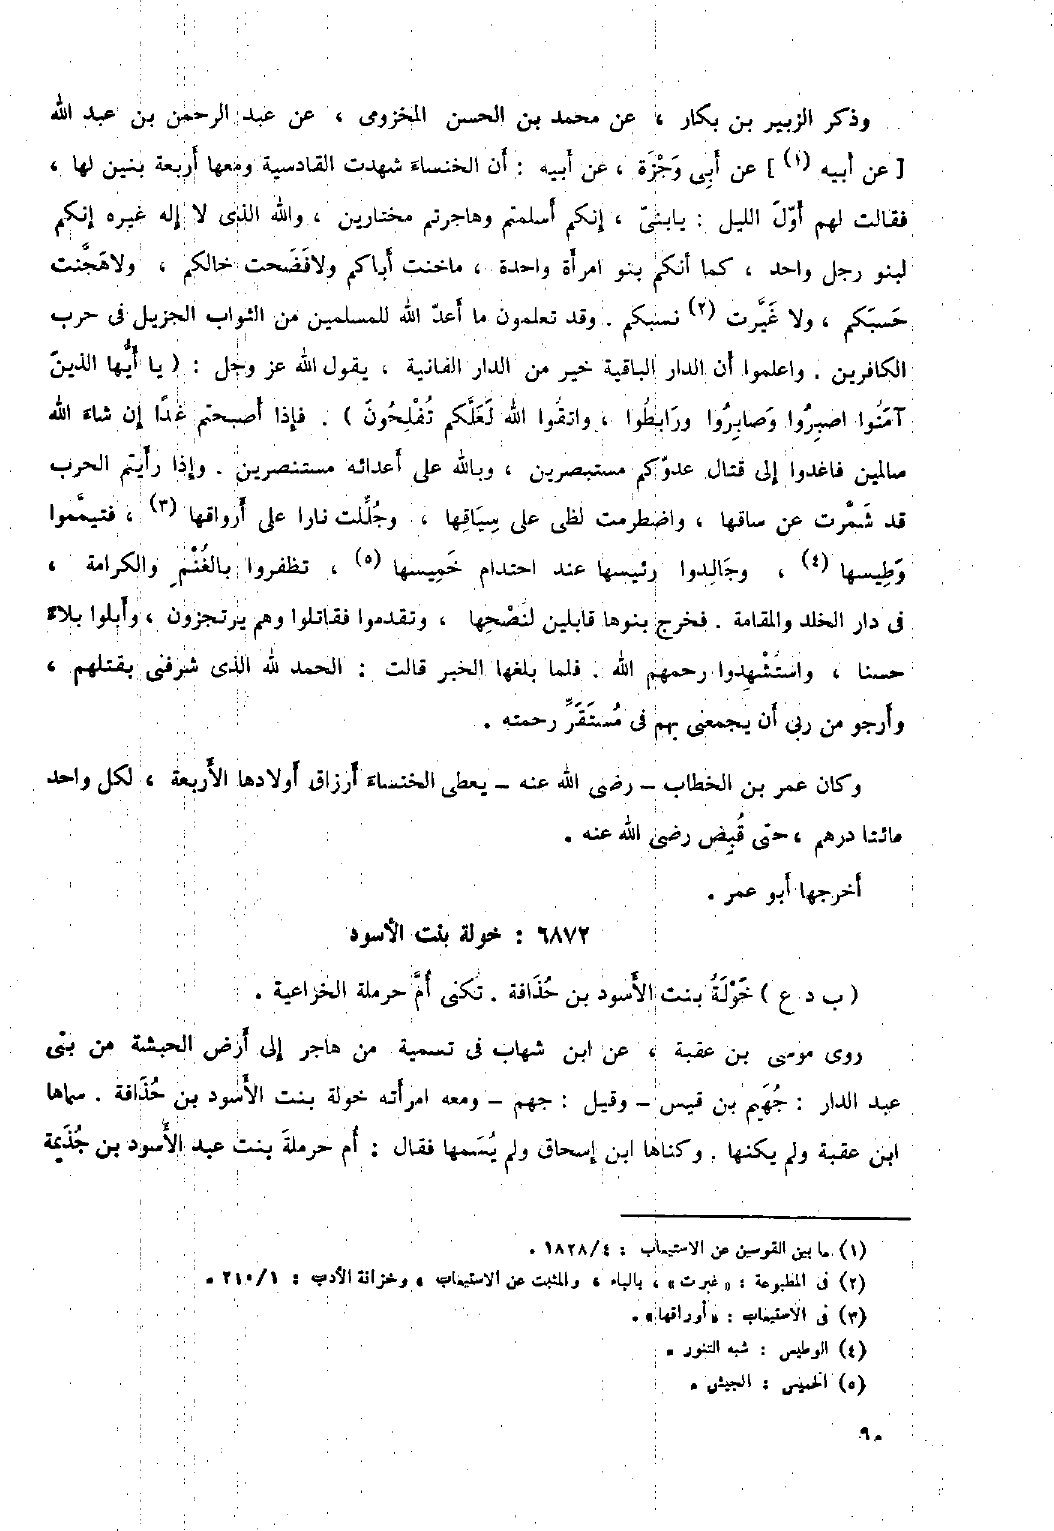 وذكر الزبير بن بكار ، عن محمد بن الحسن المخزومى ، عن عبد الرحمن بن عبد الله
[ عن أبيه (١) ] عن أَبِى وَجْزَة ، عن أَبيه : أَن الخنساءَ شهدت القادسية ومعها أَربعة بنين لها ،
فقالت لهم أَوّلَ الليل : يابنىّ ، إنكم أَسلمتم وهاجرتم مختارين ، والله الذى لا إله غيره إنكم
لبنو رجل واحد ، كما أَنكم بنو امرأَة واحدة ، ماخنت أَباكم ولافَضَحت خالكم ، ولاهَجَّنت
حَسبَكم ، ولا غَيَّرت (٢) نسبكم . وقد تعلمون ما أَعدّ الله للمسلمين من الثواب الجزيل فى حرب
الكافرين . واعلموا أَن الدار الباقية خير من الدار الفانية ، يقول الله عز وجل : ( يا أَيُّها الذينَ
آمَنُوا اصبِرُوا وَصابِرُوا ورَابِطُوا ، واتقُوا الله لَعَلَّكم تُفْلِحُونَ ) . فإذا أَصبحتم غدًا إن شاءَ الله
سالمين فاغدوا إلى قتال عدوّكم مستبصرين ، وبالله على أَعدائه مستنصرين . وإذا رأَيتم الحرب
قد شَمَّرت عن ساقها ، واضطرمت لظى على سِيَاقِها ، وجُلِّلت نارا على أَرواقها (٣) ، فتيمَّموا
وَطِيسها (٤) ، وجَالِدوا رئيسها عند احتدام خَمِيسها (٥) ، تظفروا بالغُنْمِ والكرامة ،
فى دار الخلد والمقامة . فخرج بنوها قابلين لنُصْحِها ، وتقدموا فقاتلوا وهم يرتجزون ، وأَبلوا بلاءً
حسنا ، واستُشْهِدوا رحمهم الله . فلما بلغها الخبر قالت : الحمد لله الذى شرفنى بقتلهم ،
وأَرجو من ربى أَن يجمعنى بهم فى مُستَقَرِّ رحمته .
وكان عمر بن الخطاب – رضى الله عنه – يعطى الخنساءَ أَرزاق أَولادها الأَربعة ، لكل واحد
مائتا درهم ، حتى قُبِض رضى الله عنه .
أَخرجها أَبو عمر .
٦٨٧٢ : خولة بنت الأسود
( ب د ع ) خَوْلَةُ بنت الأَسود بن حُذَافة . تكنى أُمَّ حرملة الخزاعية .
روى موسى بن عقبة ، عن ابن شهاب فى تسمية من هاجر إلى أَرض الحبشة من بنى
عبد الدار : جُهَيم بن قيس – وقيل : جهم – ومعه امرأَته خولة بنت الأَسود بن حُذَافة . سماها
ابن عقبة ولم يكنها . وكناها ابن إسحاق ولم يُسَمها فقال : أُم حرملةَ بنت عبد الأَسود بن جُذَيمة
(١) ما بين القوسين عن الاستيعاب : ١٨٢٨/٤ .
(٢) فى المطبوعة : «غبرت» ، بالباء ، والمثبت عن الاستيعاب ، وخزانة الأدب : ٢١٠/١ .
(٣) فى الاستيعاب : «أوراقها» .
(٤) الوطيس : شبه التنور .
(٥) الخميس : الجيش .
٩٠